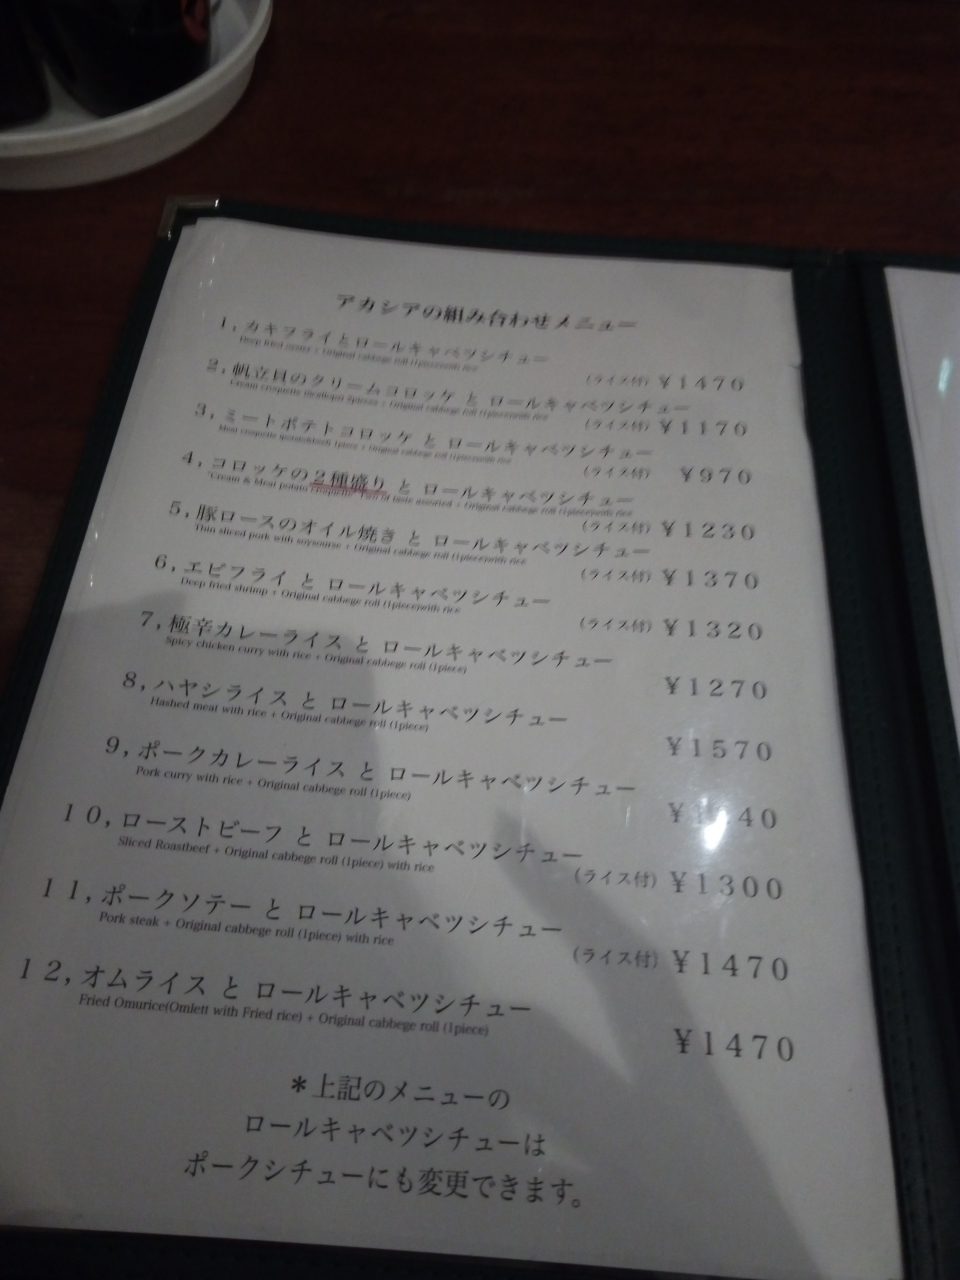 アカシアの組み合わせメニュー
1, カキフライとロールキャベツシチュー
Deep fried oyster + Original cabbege roll (1piece)with rice
(ライス付) ¥1470
2, 帆立貝のクリームコロッケ と ロールキャベツシチュー
Cream croquette + Original cabbege roll (1piece)with rice
(ライス付) ¥1170
3, ミートポテトコロッケ と ロールキャベツシチュー
Meat croquette + Original cabbege roll (1piece)with rice
(ライス付) ¥970
4, コロッケの2種盛り と ロールキャベツシチュー
"Cream & Meat potato croquette" Two of taste assorted + Original cabbege roll (1piece)with rice
(ライス付) ¥1230
5, 豚ロースのオイル焼き と ロールキャベツシチュー
Thin sliced pork with soysourse + Original cabbeg roll (1piece)with rice
(ライス付) ¥1370
6, エビフライ と ロールキャベツシチュー
Deep fried shrimp + Original cabbege roll (1piece)with rice
(ライス付) ¥1320
7, 極辛カレーライス と ロールキャベツシチュー
Spicy chicken curry with rice + Original cabbege roll (1piece)
¥1270
8, ハヤシライス と ロールキャベツシチュー
Hashed meat with rice + Original cabbege roll (1piece)
¥1570
9, ポークカレーライス と ロールキャベツシチュー
Pork curry with rice + Original cabbege roll (1piece)
10, ローストビーフ と ロールキャベツシチュー
Sliced Roastbeef + Original cabbege roll (1piece) with rice
(ライス付) ¥1300
11, ポークソテー と ロールキャベツシチュー
Pork steak + Original cabbege roll (1piece) with rice
(ライス付) ¥1470
12, オムライス と ロールキャベツシチュー
Fried Omurice(Omlett with Fried rice) + Original cabbege roll (1piece)
¥1470
*上記のメニューの
ロールキャベツシチューは
ポークシチューにも変更できます。